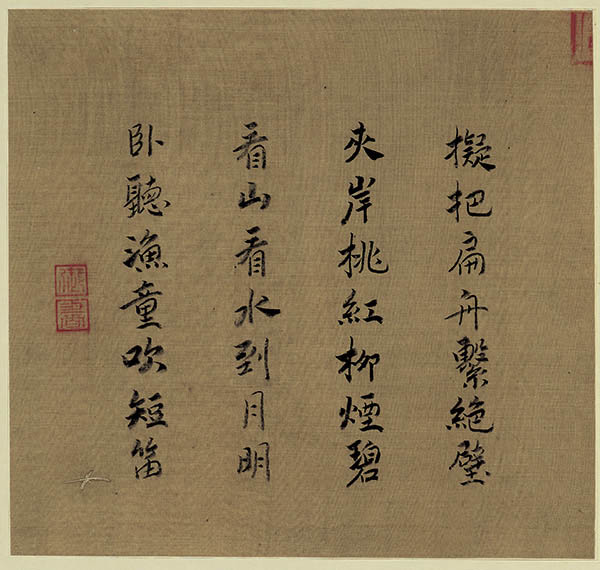 擬把扁舟繫絶壁
夾岸桃紅柳煙碧
看山看水到月明
卧聽漁童吹短笛
御書